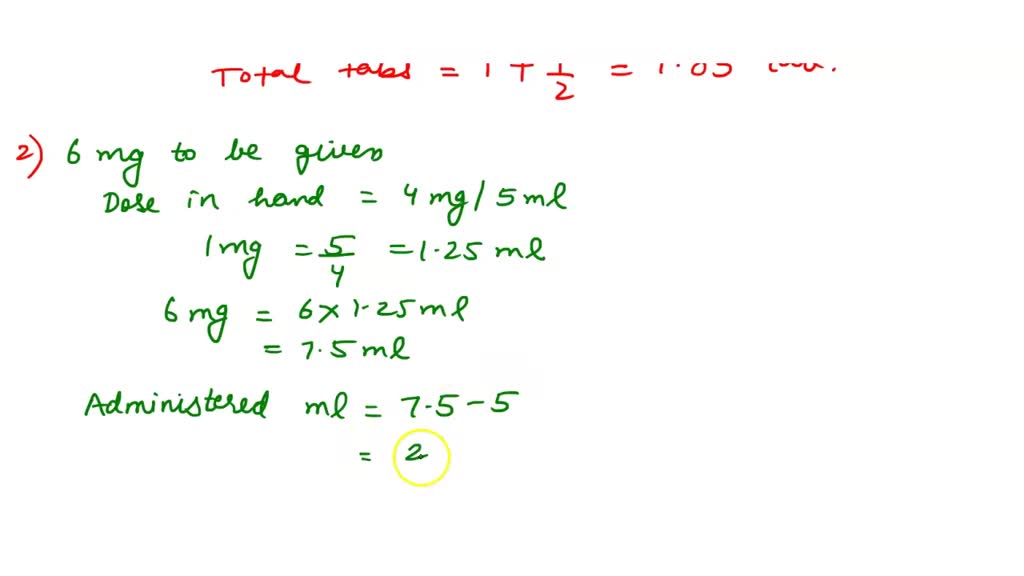 Total tabs = 1 + 1/2 = 1.05
2) 6 mg to be given
Dose in hand = 4 mg / 5 ml
1 mg = 5/4 = 1.25 ml
6 mg = 6 x 1.25 ml
= 7.5 ml
Administered ml = 7.5 - 5
= 2